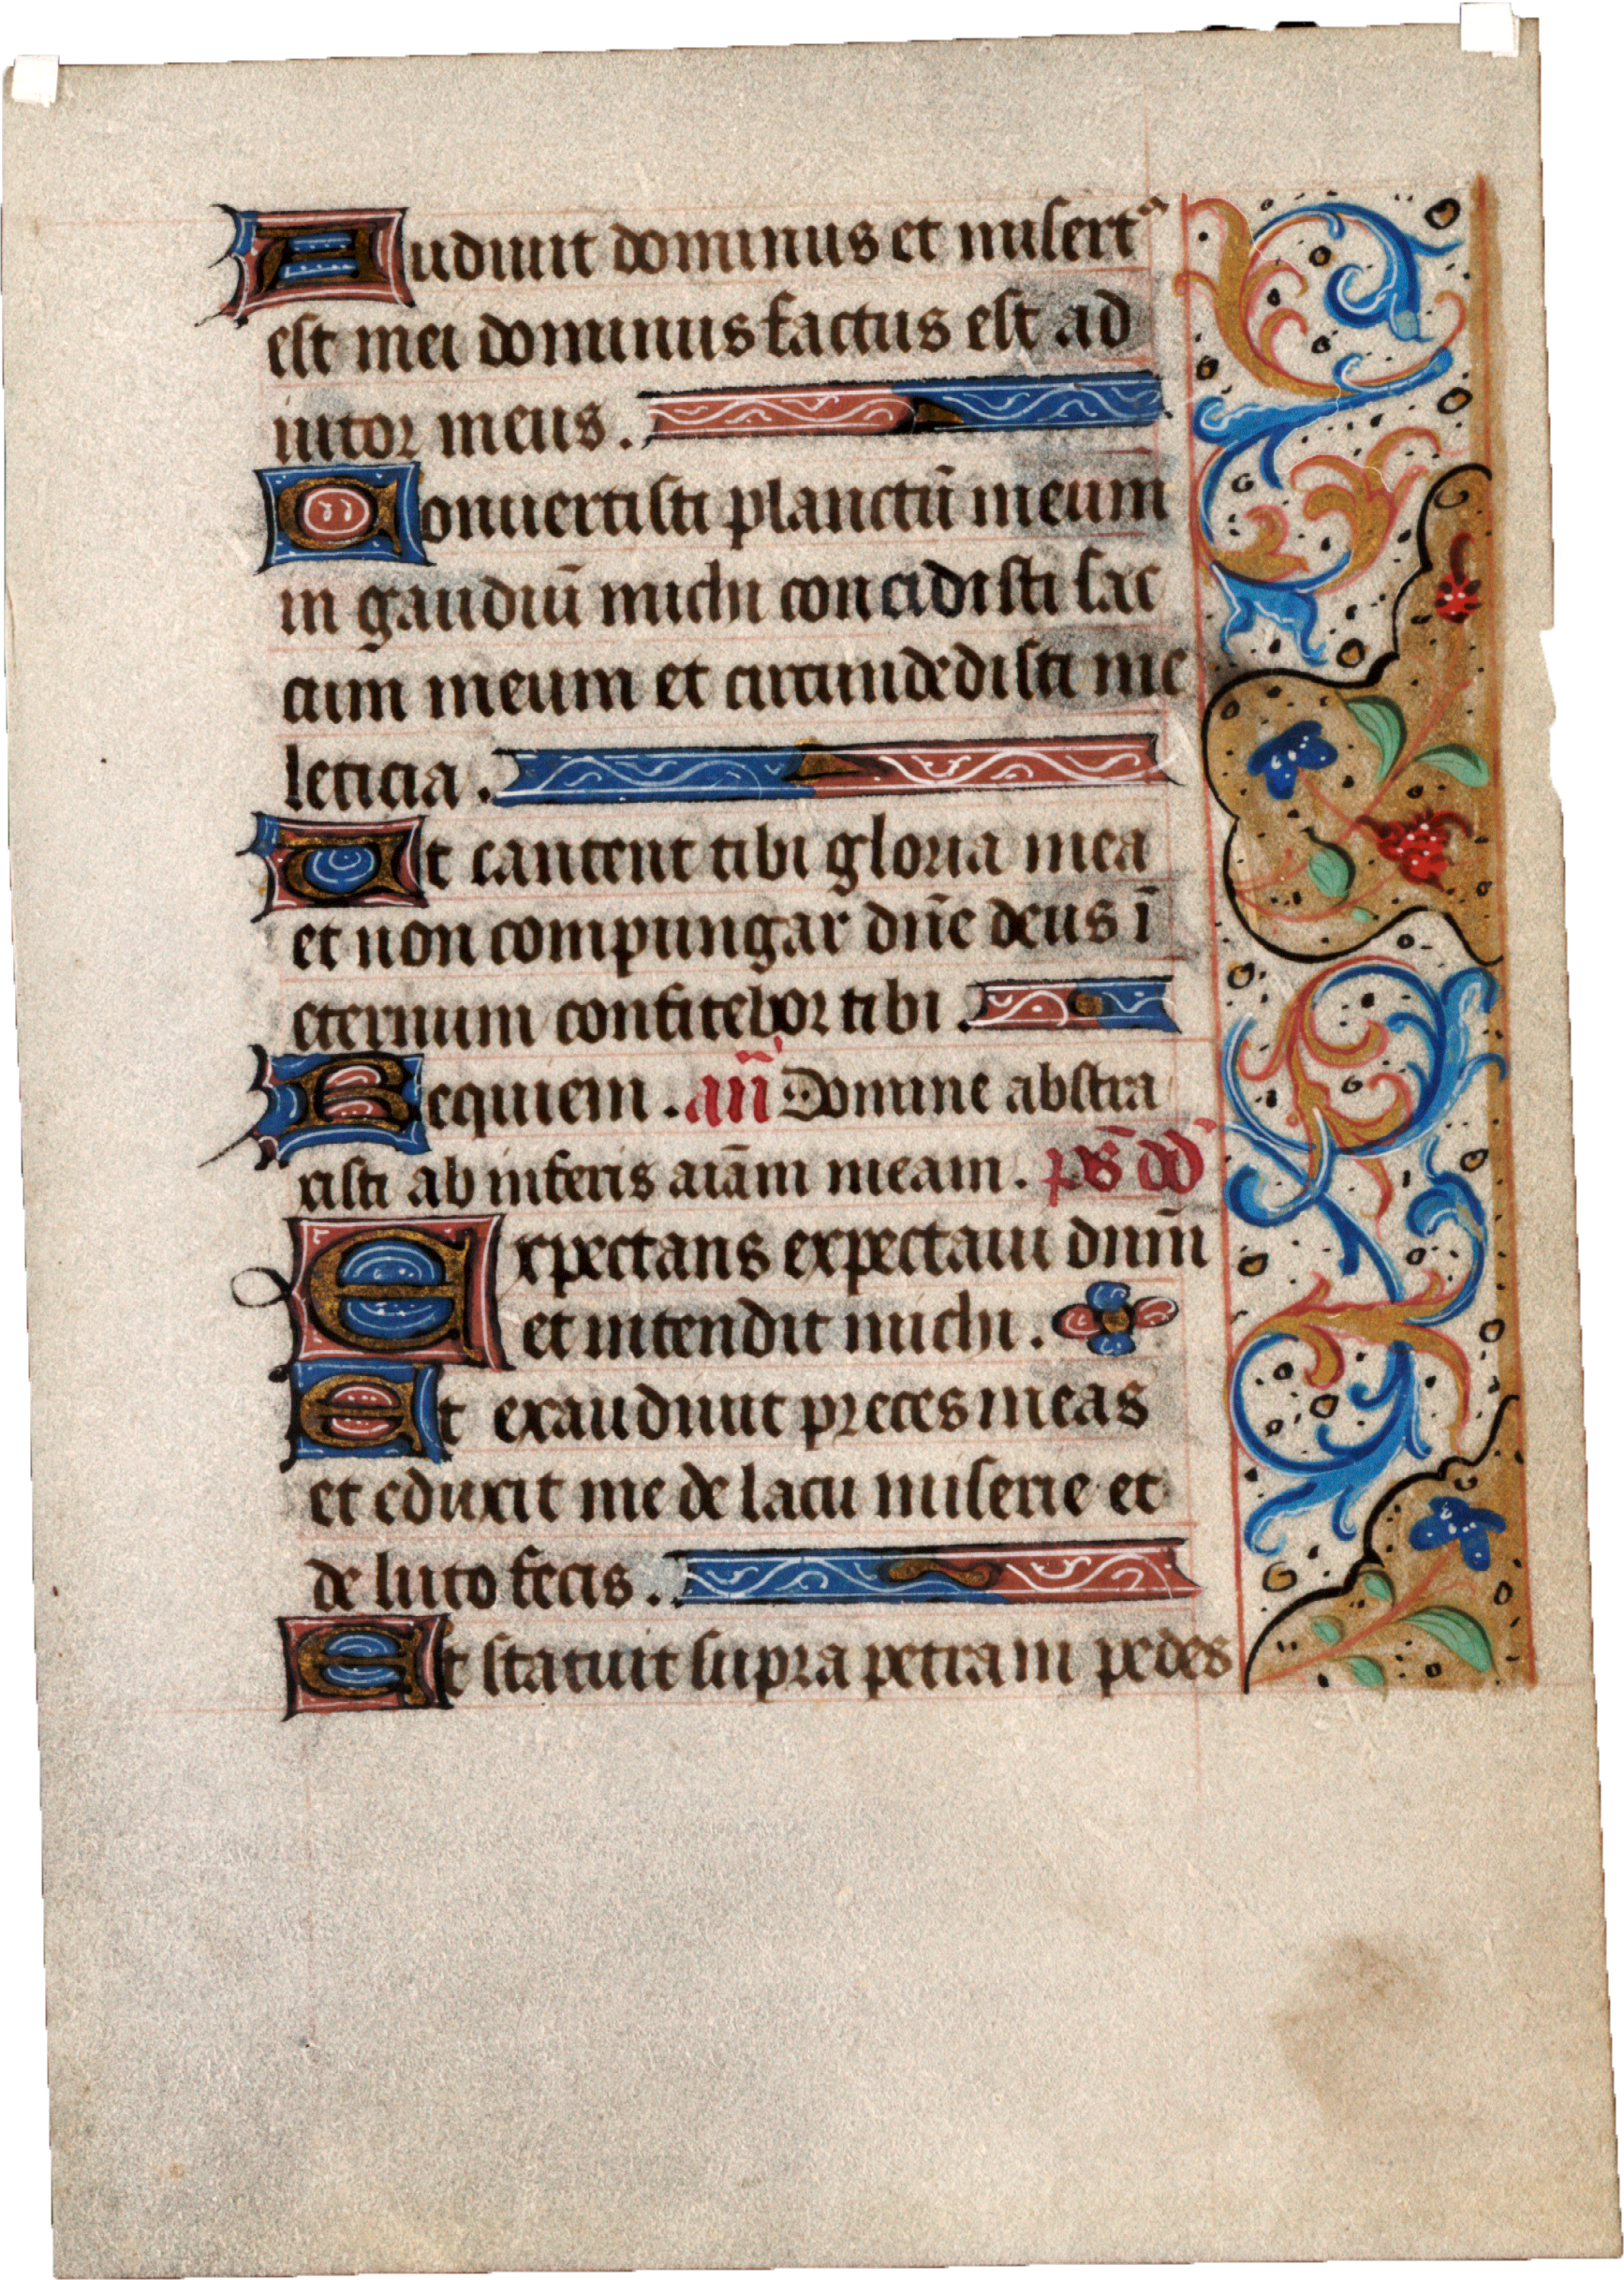 Audiuit dominus et misertꝰ
est mei dominus factus est ad
iutor meus.
Conuertisti planctū meum
in gaudiū michi concidisti sac
cum meum et circumdedisti me
leticia.
Ut cantent tibi gloria mea
et non compungar dn̄e deus ī
eternum confitebor tibi.
Requiem. an̄ Domine abstra
xisti ab inferis aīam meam. ps̄ dd̄
Expectans expectaui dnm̄
et intendit michi.
Et exaudiuit preces meas
et eduxit me de lacu miserie et
de luto fecis.
Et statuit supra petram pedes